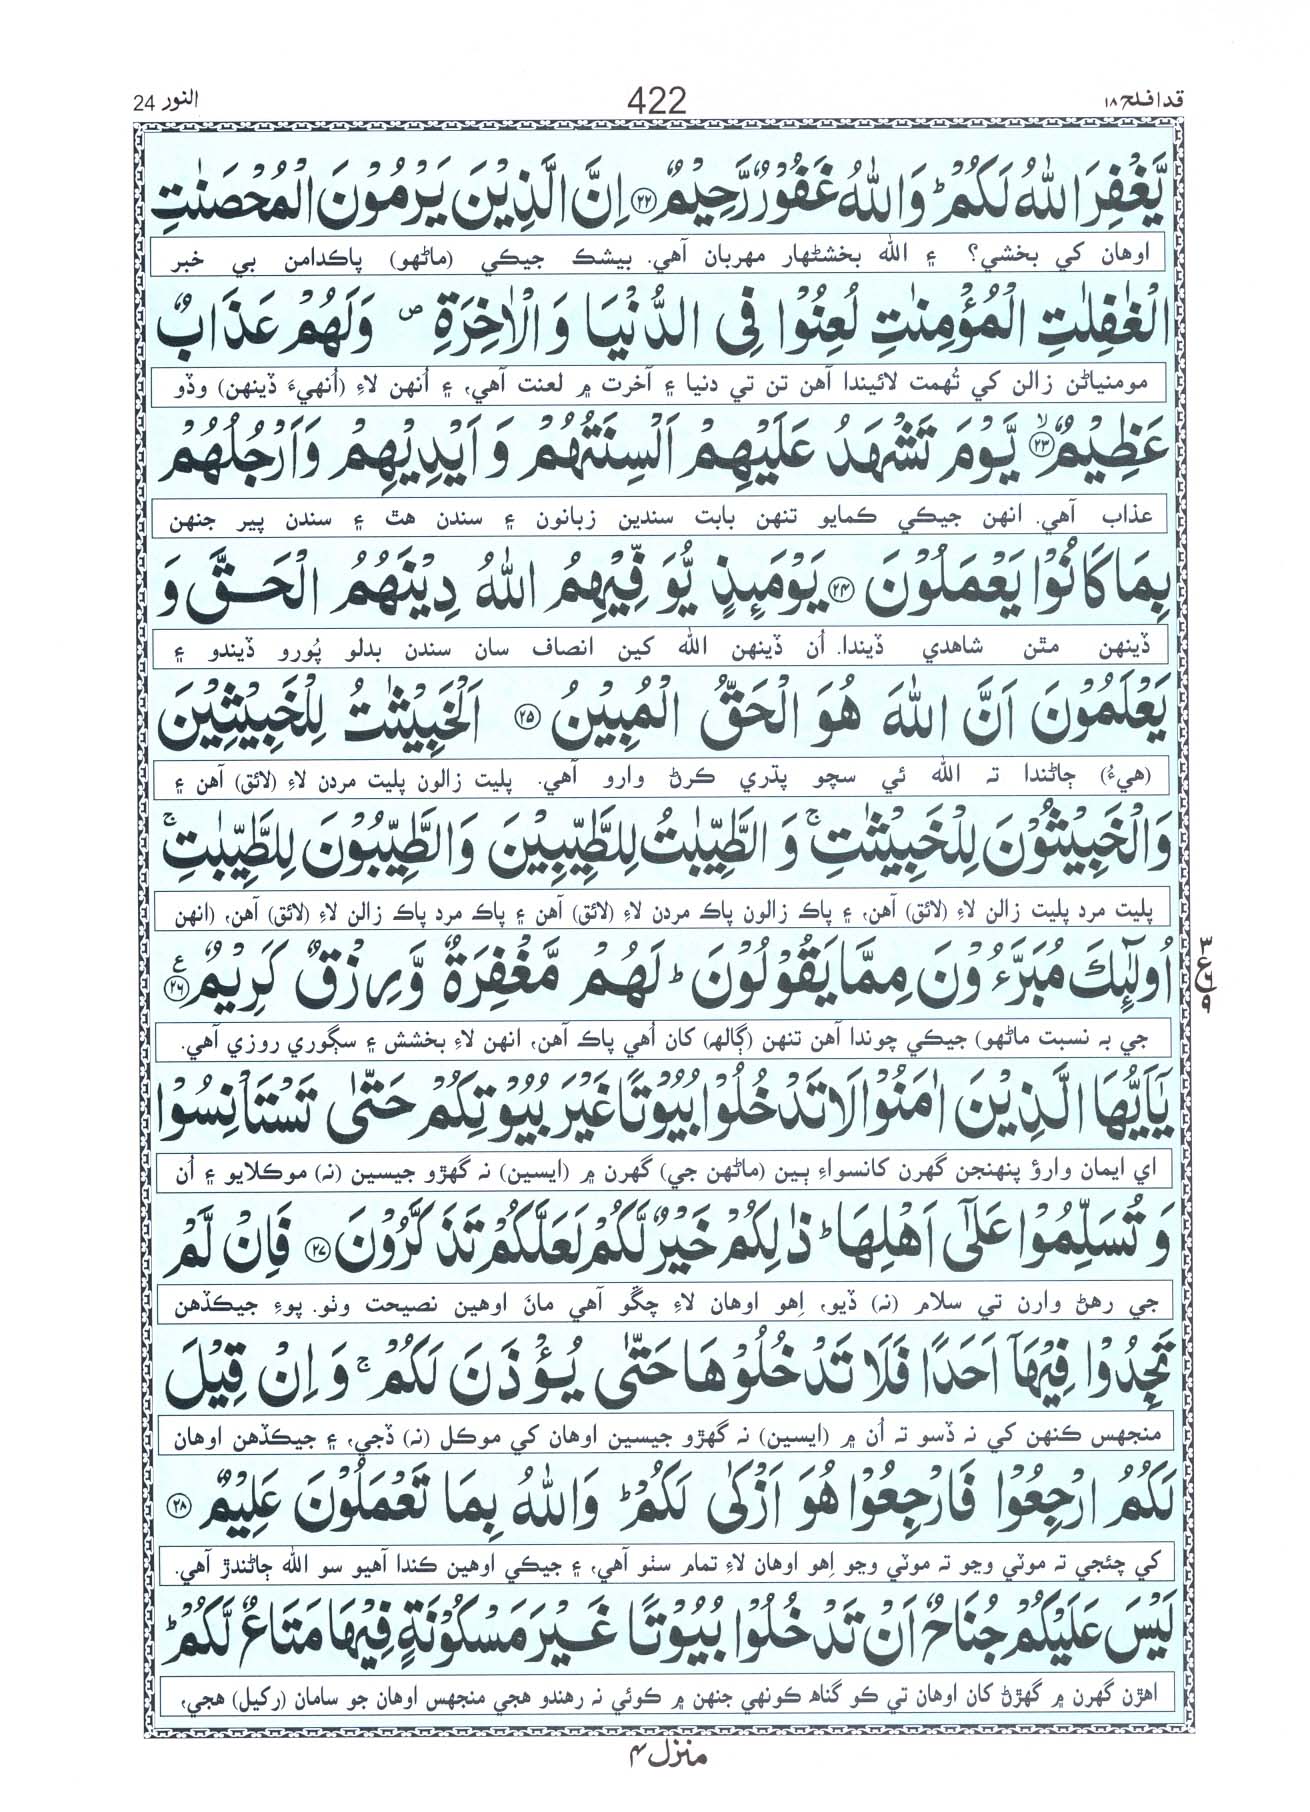 قد افلح ۱۸
422
النور 24
يَّغْفِرَ اللّٰهُ لَكُمْ ؕ وَاللّٰهُ غَفُوْرٌ رَّحِيْمٌ ﴿۲۲﴾ اِنَّ الَّذِيْنَ يَرْمُوْنَ الْمُحْصَنٰتِ
اوهان کي بخشي؟ ۽ الله بخشڻهار مهربان آهي. بيشڪ جيڪي (ماڻهو) پاڪدامن بي خبر
الْغٰفِلٰتِ الْمُؤْمِنٰتِ لُعِنُوْا فِى الدُّنْيَا وَ الْاٰخِرَةِ ۪ وَلَهُمْ عَذَابٌ
مومنياڻن زالن کي تُهمت لائيندا آهن تن تي دنيا ۽ آخرت ۾ لعنت آهي، ۽ اُنهن لاءِ (اُنهيءَ ڏينهن) وڏو
عَظِيْمٌ ۙ﴿۲۳﴾ يَّوْمَ تَشْهَدُ عَلَيْهِمْ اَلْسِنَتُهُمْ وَ اَيْدِيْهِمْ وَاَرْجُلُهُمْ
عذاب آهي. انهن جيڪي ڪمايو تنهن بابت سندين زبانون ۽ سندن هٿ ۽ سندن پير جنهن
بِمَا كَانُوْا يَعْمَلُوْنَ ﴿۲۴﴾ يَوْمَئِذٍ يُّوَفِّيْهِمُ اللّٰهُ دِيْنَهُمُ الْحَقَّ وَ
ڏينهن مٿن شاهدي ڏيندا. اُن ڏينهن الله کين انصاف سان سندن بدلو پُورو ڏيندو ۽
يَعْلَمُوْنَ اَنَّ اللّٰهَ هُوَ الْحَقُّ الْمُبِيْنُ ﴿۲۵﴾ اَلْخَبِيْثٰتُ لِلْخَبِيْثِيْنَ
(هيءُ) ڄاڻندا تہ الله ئي سچو پڌري ڪرڻ وارو آهي. پليت زالون پليت مردن لاءِ (لائق) آهن ۽
وَالْخَبِيْثُوْنَ لِلْخَبِيْثٰتِ ۚ وَ الطَّيِّبٰتُ لِلطَّيِّبِيْنَ وَالطَّيِّبُوْنَ لِلطَّيِّبٰتِ ۚ
پليت مرد پليت زالن لاءِ (لائق) آهن، ۽ پاڪ زالون پاڪ مردن لاءِ (لائق) آهن ۽ پاڪ مرد پاڪ زالن لاءِ (لائق) آهن، (انهن
اُولٰٓئِكَ مُبَرَّءُوْنَ مِمَّا يَقُوْلُوْنَ ؕ لَهُمْ مَّغْفِرَةٌ وَّرِزْقٌ كَرِيْمٌ ﴿۲۶﴾ ع
۳ ع ۹
جي بہ نسبت ماڻهو) جيڪي چوندا آهن تنهن (ڳالهہ) کان اُهي پاڪ آهن، انهن لاءِ بخشش ۽ سڳوري روزي آهي.
يٰۤاَيُّهَا الَّذِيْنَ اٰمَنُوْا لَا تَدْخُلُوْا بُيُوْتًا غَيْرَ بُيُوْتِكُمْ حَتّٰى تَسْتَاْنِسُوْا
اي ايمان وارؤ پنهنجن گهرن کانسواءِ ٻين (ماڻهن جي) گهرن ۾ (ايسين) نہ گهڙو جيسين (نہ) موڪلايو ۽ اُن
وَ تُسَلِّمُوْا عَلٰٓى اَهْلِهَا ؕ ذٰلِكُمْ خَيْرٌ لَّكُمْ لَعَلَّكُمْ تَذَكَّرُوْنَ ﴿۲۷﴾ فَاِنْ لَّمْ
جي رهڻ وارن تي سلام (نہ) ڏيو، اِهو اوهان لاءِ چڱو آهي مانَ اوهين نصيحت وٺو. پوءِ جيڪڏهن
تَجِدُوْا فِيْهَاۤ اَحَدًا فَلَا تَدْخُلُوْهَا حَتّٰى يُؤْذَنَ لَكُمْ ۚ وَ اِنْ قِيْلَ
منجهس ڪنهن کي نہ ڏسو تہ اُن ۾ (ايسين) نہ گهڙو جيسين اوهان کي موڪل (نہ) ڏجي، ۽ جيڪڏهن اوهان
لَكُمُ ارْجِعُوْا فَارْجِعُوْا هُوَ اَزْكٰى لَكُمْ ؕ وَاللّٰهُ بِمَا تَعْمَلُوْنَ عَلِيْمٌ ﴿۲۸﴾
کي چئجي تہ موٽي وڃو تہ موٽي وڃو اِهو اوهان لاءِ تمام سٺو آهي، ۽ جيڪي اوهين ڪندا آهيو سو الله ڄاڻندڙ آهي.
لَيْسَ عَلَيْكُمْ جُنَاحٌ اَنْ تَدْخُلُوْا بُيُوْتًا غَيْرَ مَسْكُوْنَةٍ فِيْهَا مَتَاعٌ لَّكُمْ ؕ
اهڙن گهرن ۾ گهڙڻ کان اوهان تي ڪو گناھ ڪونهي جنهن ۾ ڪوئي نہ رهندو هجي منجهس اوهان جو سامان (رکيل) هجي،
منزل ۴